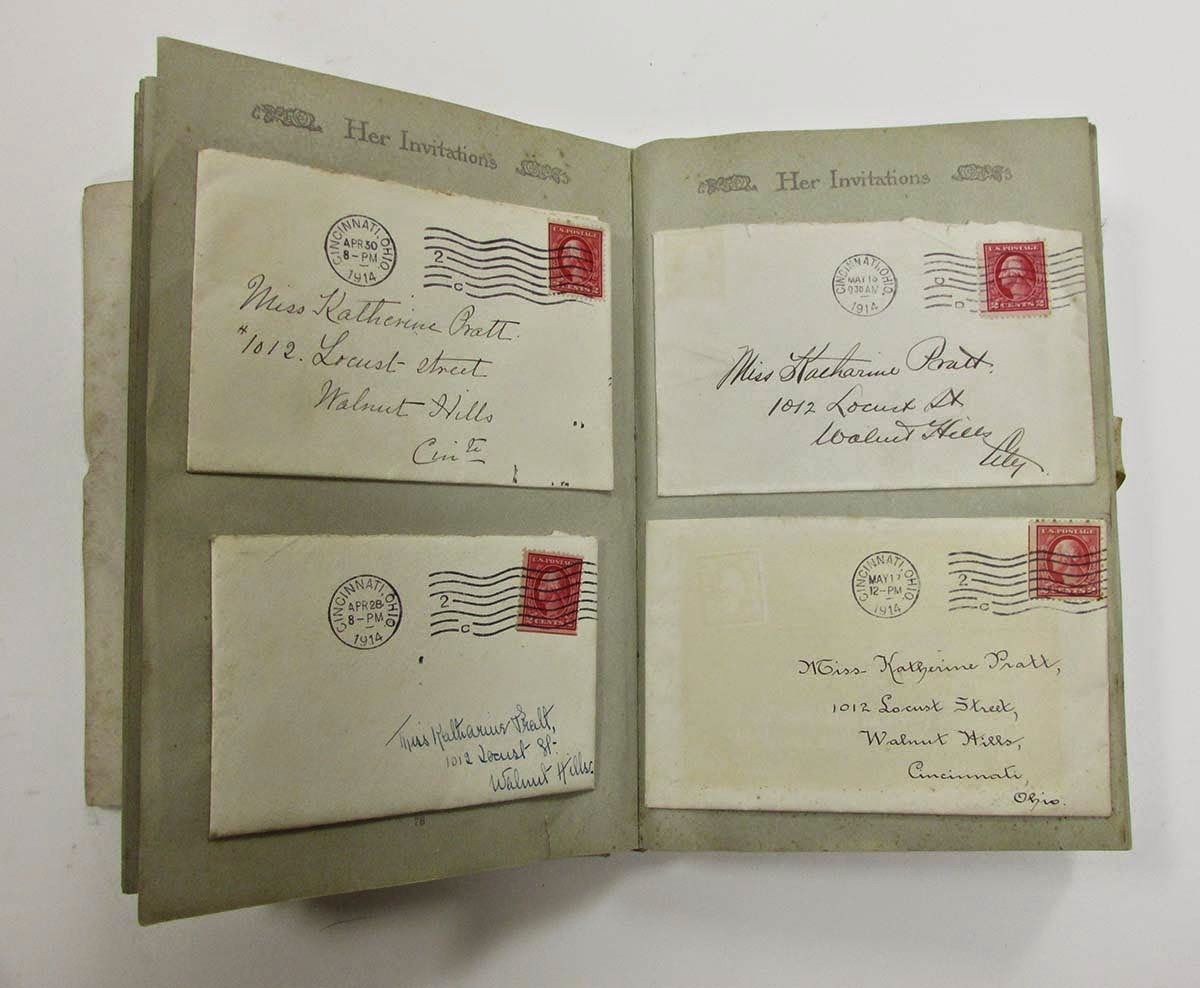 Her Invitations
CINCINNATI, OHIO
APR 30
8-PM
1914
2
C
U.S. POSTAGE
CENTS 2
Miss Katherine Pratt.
#1012. Locust street
Walnut Hills
Cin te
CINCINNATI, OHIO
APR 28
8-PM
1914
2
C
2 CENTS
Miss Katharine Pratt,
1012 Locust St-
Walnut Hills
78
Her Invitations
CINCINNATI, OHIO.
MAY
30 AM
1914
D
U.S. POSTAGE
2 CENTS 2
Miss Katharine Pratt.
1012 Locust St
Walnut Hills
City.
CINCINNATI, OHIO
MAY 17
12-PM
1914
2
C
U.S. POSTAGE
Miss Katherine Pratt,
1012 Locust Street,
Walnut Hills,
Cincinnati,
Ohio.